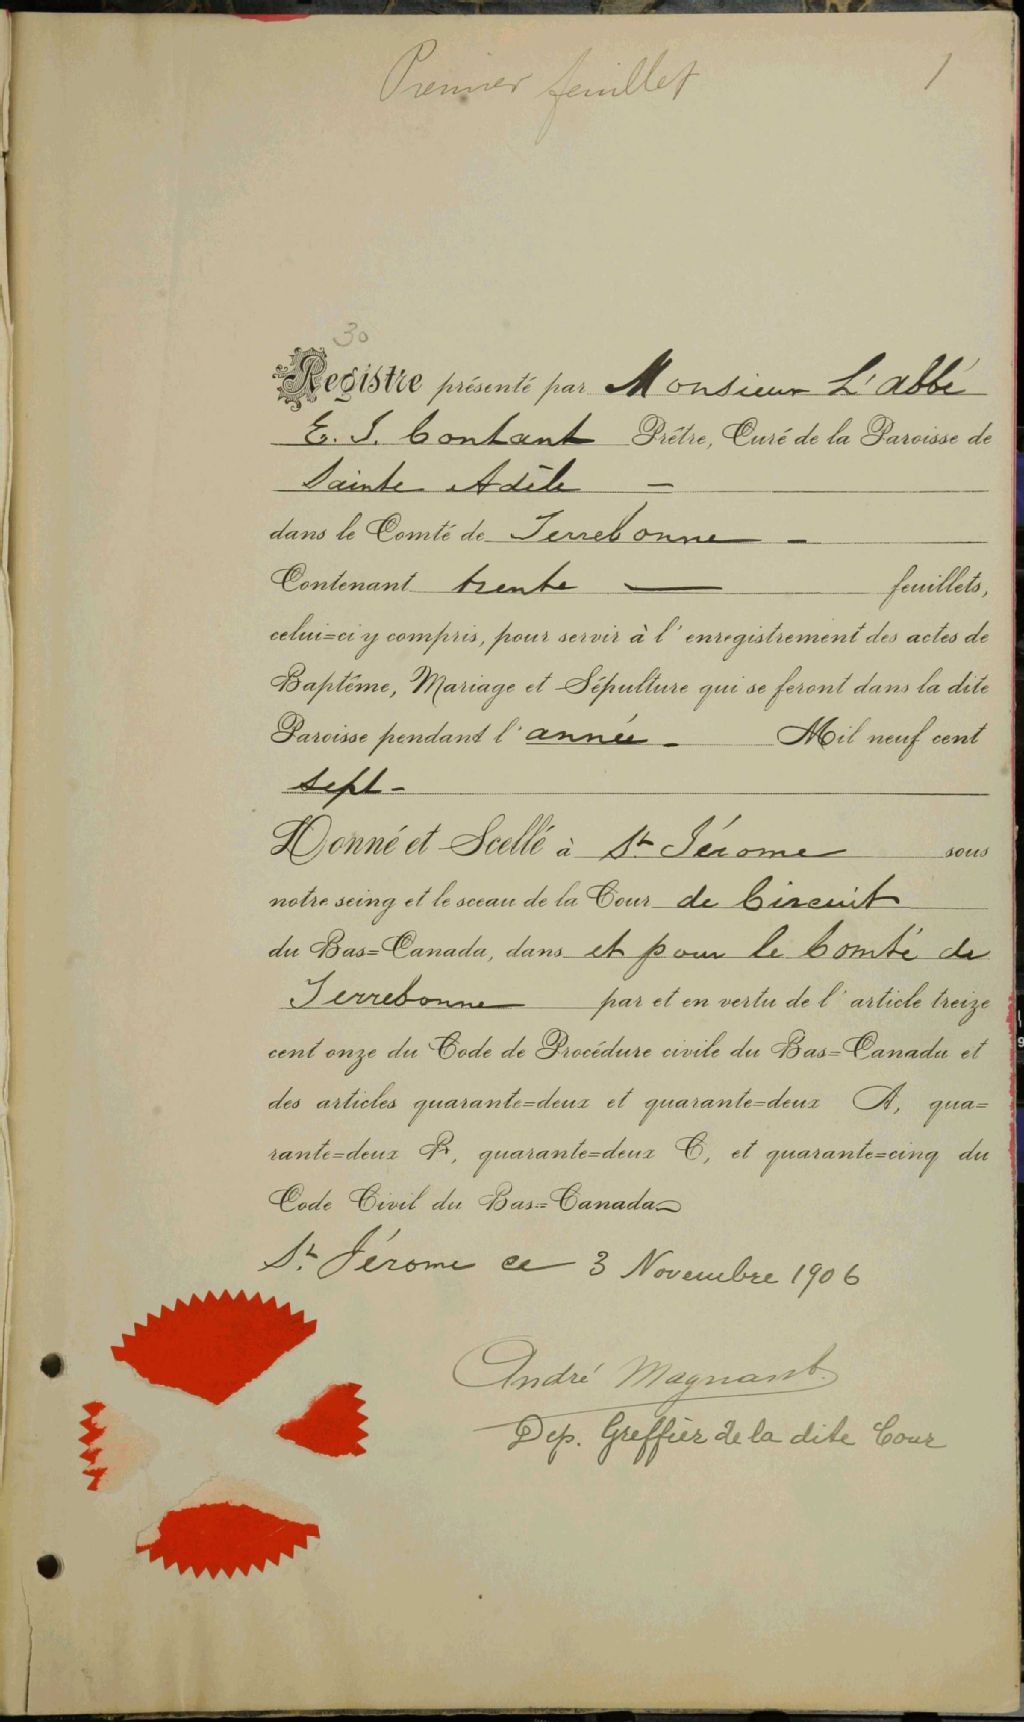 Premier feuillet 1
30
Registre présenté par Monsieur L'abbé
E. J. Contant Prêtre, Curé de la Paroisse de
Sainte Adèle —
dans le Comté de Terrebonne —
Contenant trente — feuillets,
celui=ci y compris, pour servir à l'enregistrement des actes de
Baptême, Mariage et Sépulture qui se feront dans la dite
Paroisse pendant l'année — Mil neuf cent
sept —
Donné et Scellé à St. Jérome sous
notre seing et le sceau de la Cour de Circuit
du Bas=Canada, dans et pour le Comté de
Terrebonne par et en vertu de l'article treize
cent onze du Code de Procédure civile du Bas=Canada et
des articles quarante=deux et quarante=deux A, qua=
rante=deux B, quarante=deux C, et quarante=cinq du
Code Civil du Bas=Canada
St. Jérome ce 3 Novembre 1906
André Magnant
Dep. Greffier de la dite Cour